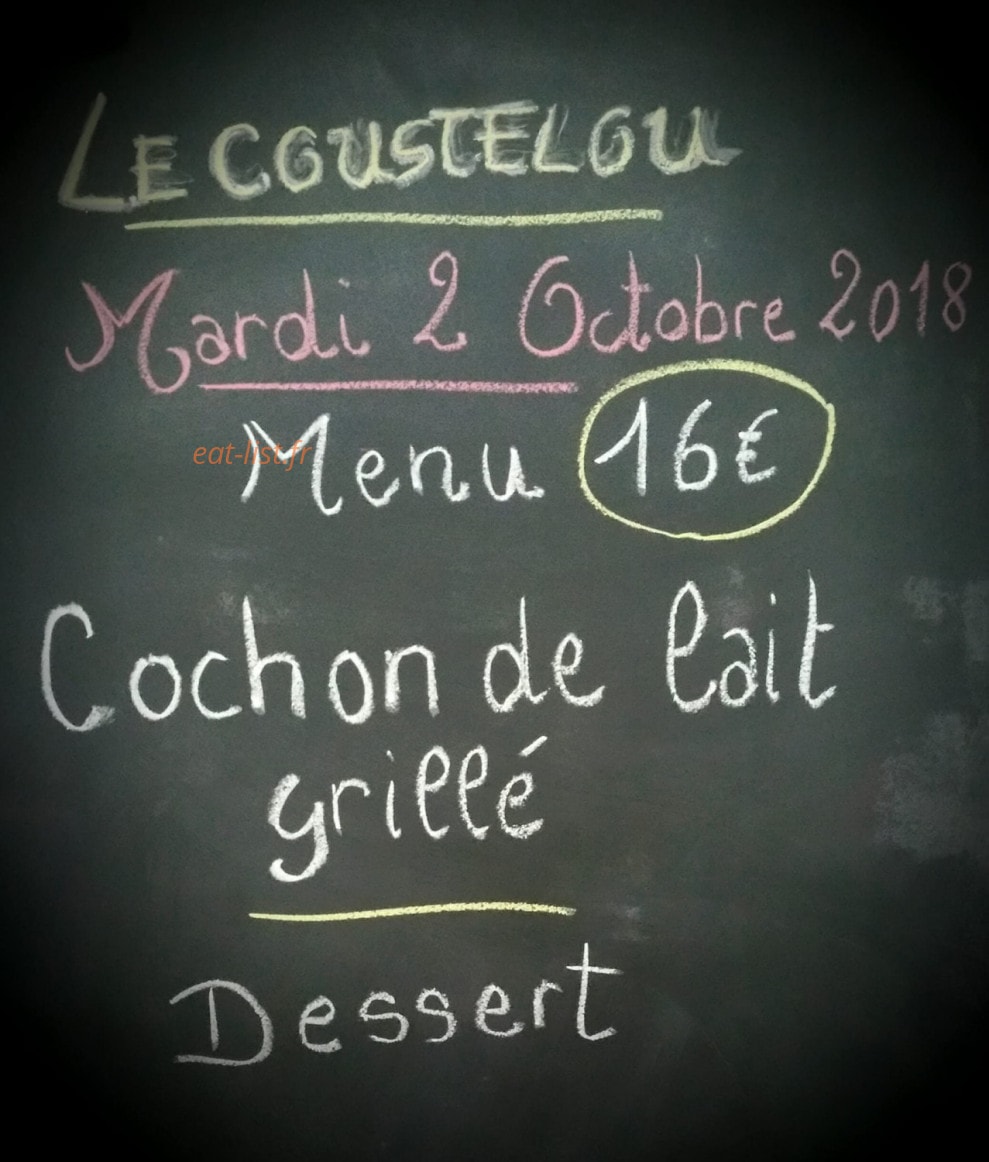 LE COUSTELOU
Mardi 2 Octobre 2018
Menu 16€
eat-list.fr
Cochon de lait
grillé
Dessert